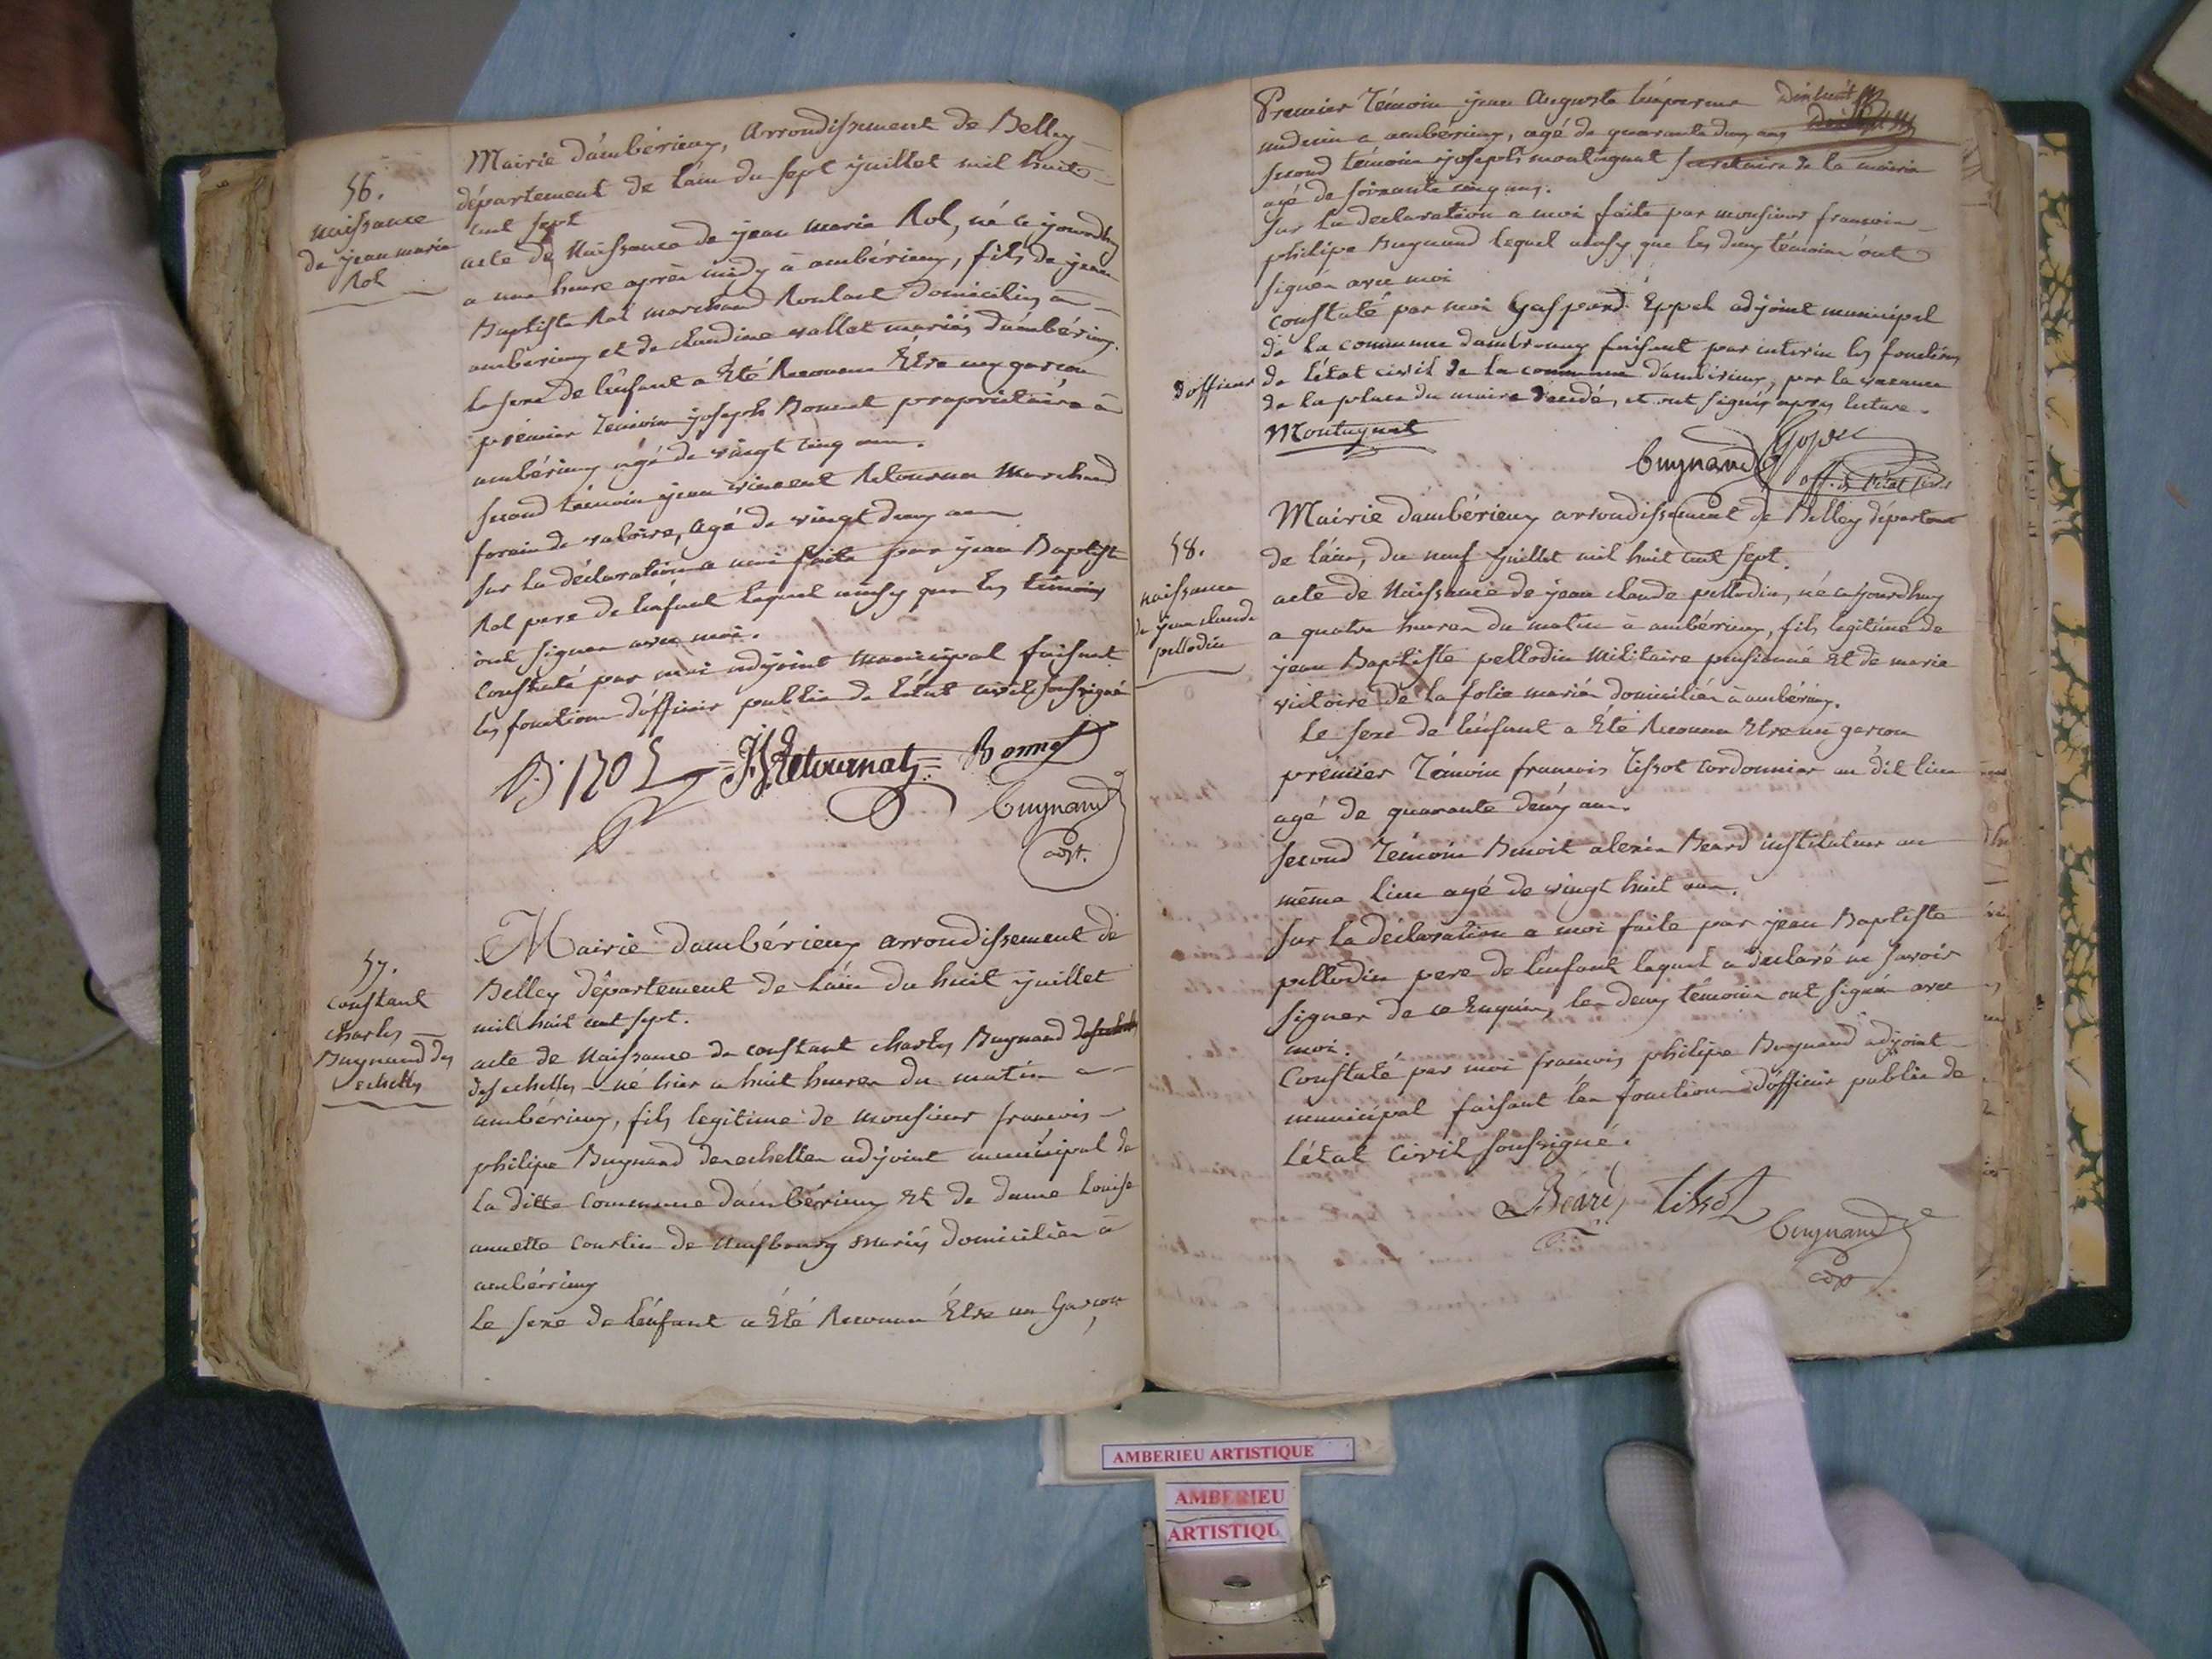 56.
naissance
de jean marie
Rol
Mairie d'ambérieux, Arrondissement de Belley
département de l'ain du sept juillet mil huit
cent sept
acte de Naissance de jean marie Rol, né ce jourdhuy
a une heure après midy à ambérieux, fils de jean
Baptiste Rol marchand Roulant domiciliés a
ambérieux et de claudine vallet mariés d'ambérieux.
Le sexe de l'enfant a Été Reconnu Être un garcon
prémier Temoin joseph Bonnet propriétaire à
ambérieux agé de vingt cinq ans.
second témoin jean vincent Retournat Marchand
forain de valoire, agé de vingt deux ans
sur la déclaration a moi faite par jean Baptiste
Rol pere de l'enfant lequel ainsy que les témoins
ont signer avec moi.
Constaté par moi adjoint municipal faisant
les fonctions d'officier public de l'état civil soussigné
Retournat Bonnet
Buynand
adjt.
57.
Constant
charles
Buynand des
echelles
Mairie dambérieux arrondissement de
Belley département de l'ain du huit juillet
mil huit cent sept.
acte de Naissance de constant charles Buynand
des echelles né hier a huit heures du matin a
ambérieux, fils legitime de monsieur francois
philipe Buynand des echelles adjoint municipal de
la ditte commune d'ambérieux Et de dame Louise
annette de mariés domiciliés à
ambérieux
Le sexe de l'enfant a Été Reconnu Être un Garçon,
Premier Témoin jean Auguste
medecin a ambérieux, agé de quarante deux ans
second témoin joseph montagnat secretaire de la mairie
agé de soixante cinq ans.
sur la declaration a moi faite par monsieur francois
philipe Buynand lequel ainsy que les deux témoins ont
signés avec moi
constaté par moi Gaspard adjoint municipal
de la commune dambronay faisant par interim les fonctions
d'officier
de l'état civil de la commune d'ambérieux, par la vacance
de la place du maire et ont signés apres lecture.
Montagnat
Buynand
off. de l'état civil
58.
naissance
de jean claude
pellodin
Mairie dambérieux arrondissement de Belley departemt
de l'ain, du neuf juillet mil huit cent sept.
acte de Naissance de jean claude pellodin, né ce jourdhuy
a quatre heures du matin à ambérieux, fils legitime de
jean Baptiste pellodin Militaire pensionné Et de marie
victoire de la folie mariés domiciliés à ambérieux.
Le sexe de l'enfant a Été Reconnu Etre un garcon
prémier Témoin francois Tissot cordonnier au dit lieu
agé de quarante deux ans.
second Témoin Benoit alexis Beard instituteur au
même lieu agé de vingt huit ans.
sur la déclaration a moi faite par jean Baptiste
pellodin pere de l'enfant lequel a declaré ne savoir
signer de ce Enquis, les deux témoins ont signés avec
moi.
Constaté par moi francois philipe Buynand adjoint
municipal faisant les fonctions d'officier public de
l'état civil soussigné.
Béard Tissot
Buynand
adjt
AMBERIEU ARTISTIQUE
AMBERIEU
ARTISTIQU